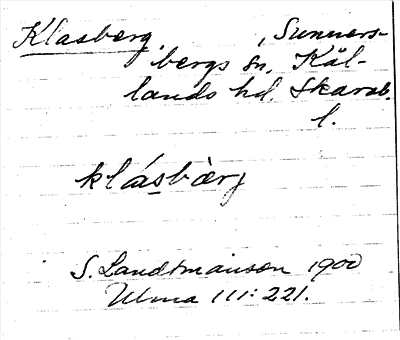 Klasberg, Sunners-
bergs sn, Kål-
lands hd. Skarab.
l.
klásbàrj
S. Landtmanson 1900
Ulma 111:221.